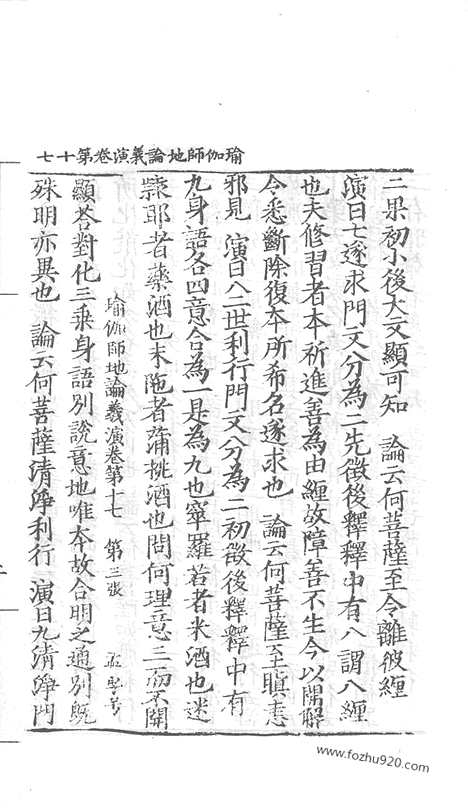 瑜伽師地論義演卷第十七
二果初小後大文顯可知　論云何菩薩至令離彼纏
演曰七遂求門文分為二先徵後釋釋中有八謂八纏
也夫修習者本祈進善為由纏故障善不生今以開解
令悉斷除復本所希名遂求也　論云何菩薩至瞋恚
邪見　演曰八二世利行門文分為二初徵後釋釋中有
九身語各四意合為一是為九也窣羅若者米酒也迷
隸耶者藥酒也末陁者蒲桃酒也問何理意三而不開
瑜伽師地論義演卷第十七　第三張
顯荅對化三乗身語別說意地唯本故合明之通別旣
殊明亦異也　論云何菩薩清淨利行　演曰九清淨門
www.fozhu920.com